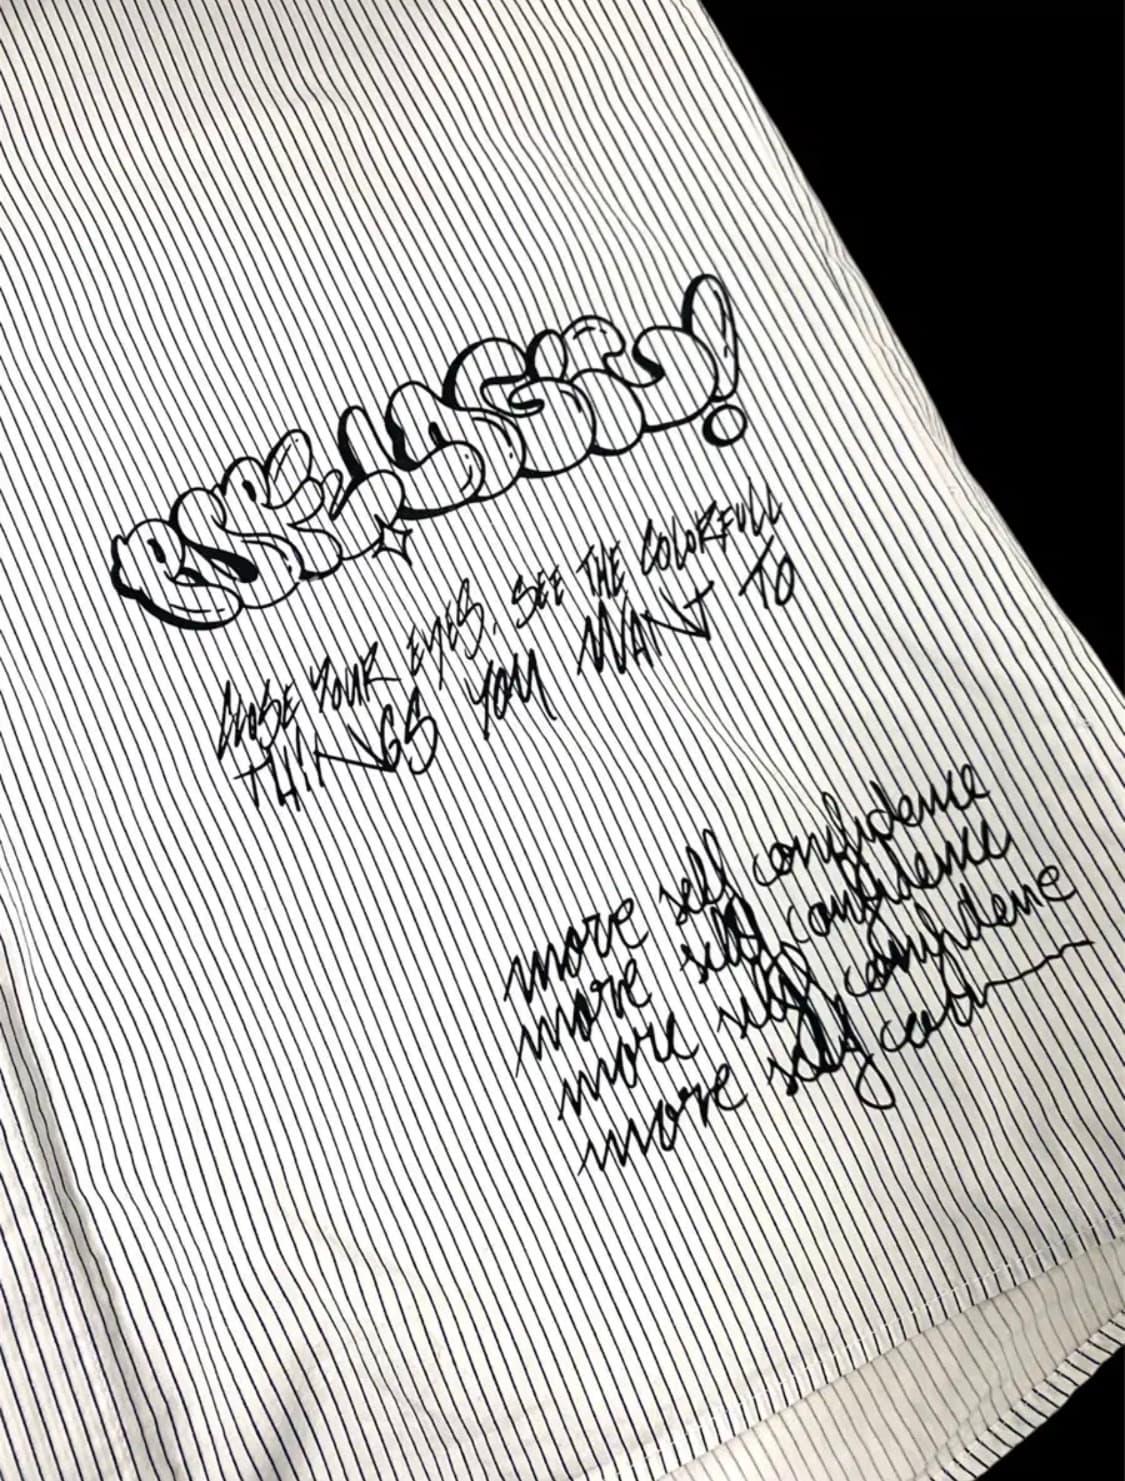 CLOSE YOUR EYES, SEE THE COLORFULL
THINGS YOU WANT TO
more self confidence
more self confidence
more self confidence
more self con